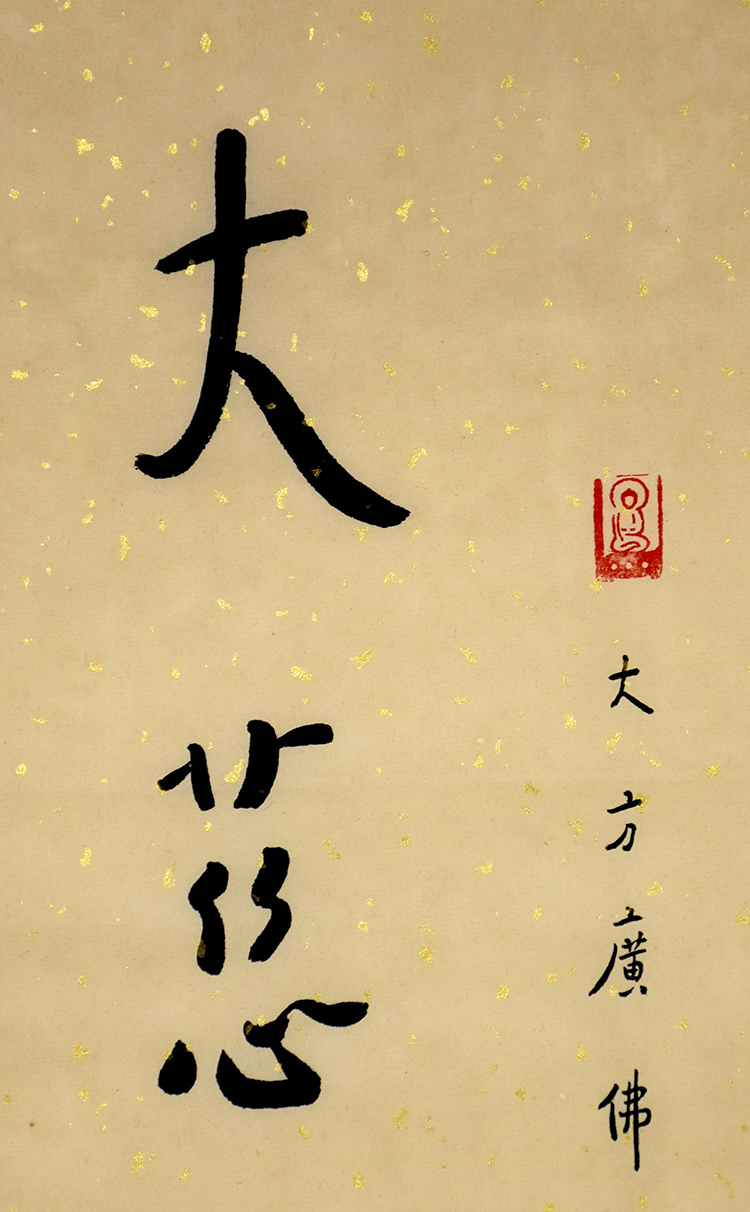 大方廣佛
大慈